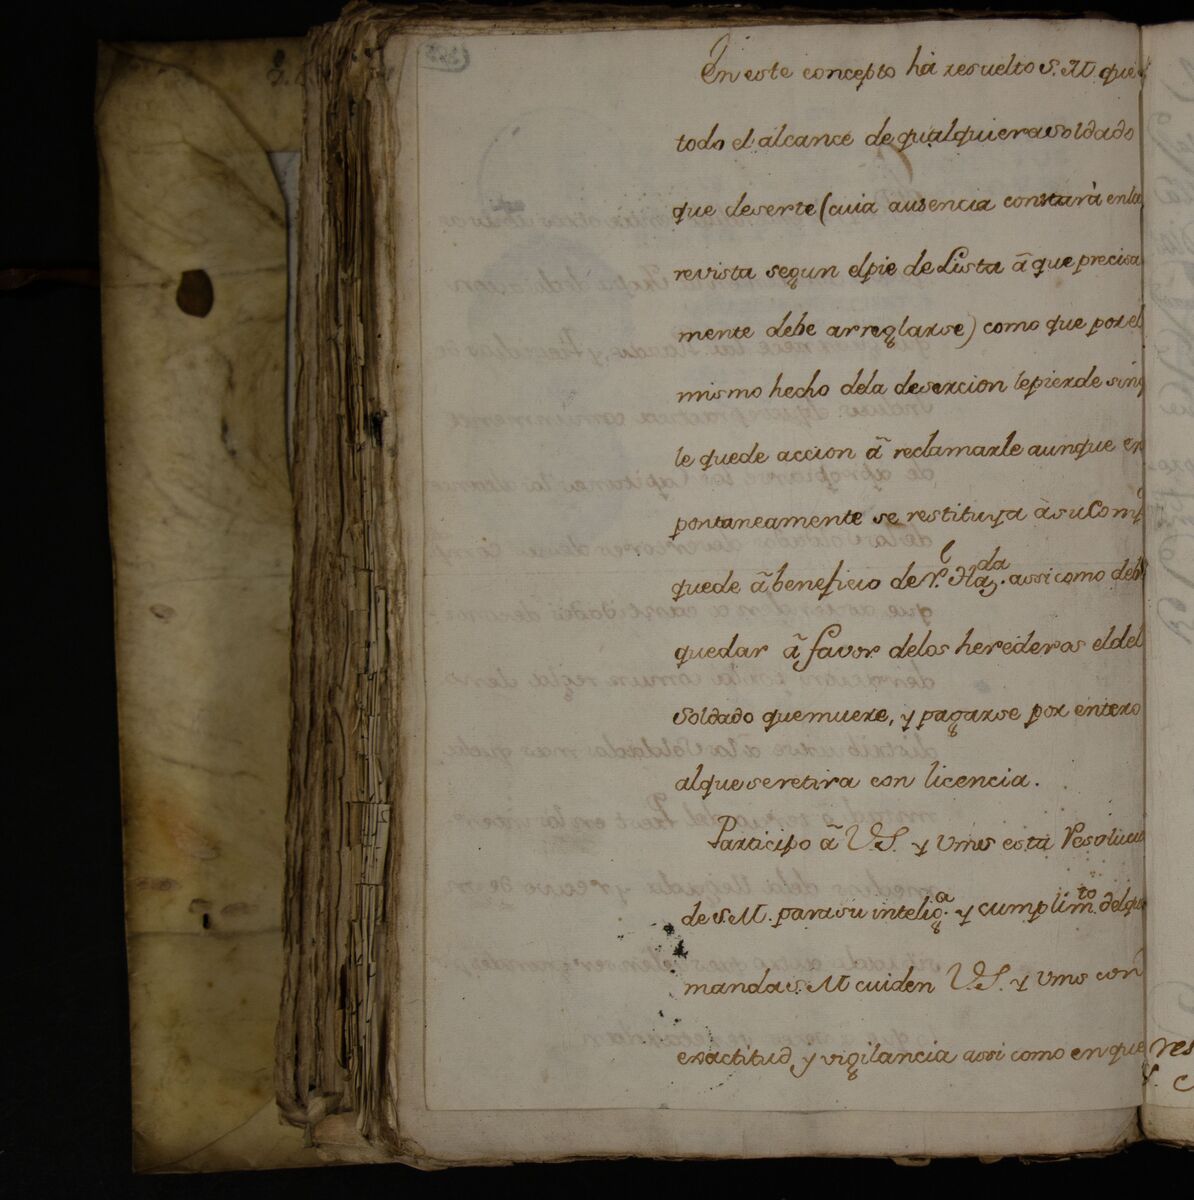 En este concepto há resuelto S. M. que
todo el alcance de qualquiera soldado
que deserte (cuia ausencia constarà en la
revista segun el pie de Lista â que precisa
mente debe arreglarse) como que por el
mismo hecho dela desercion le pierde sin q
le quede accion â reclamarle aunque es
pontaneamente se restituya à su Comp
quede â beneficio de Rl. Hazda. assi como debe
quedar â favor delos herederos el del
Soldado que muere, y pagarse por entero
alque se retira con licencia.
Participo â V.S. y Vmes esta Resoluci
de S.M. para su inteliga. y cumplimto. delque
manda S. M cuiden V.S. y Vms con
exactitud, y vigilancia assi como en que